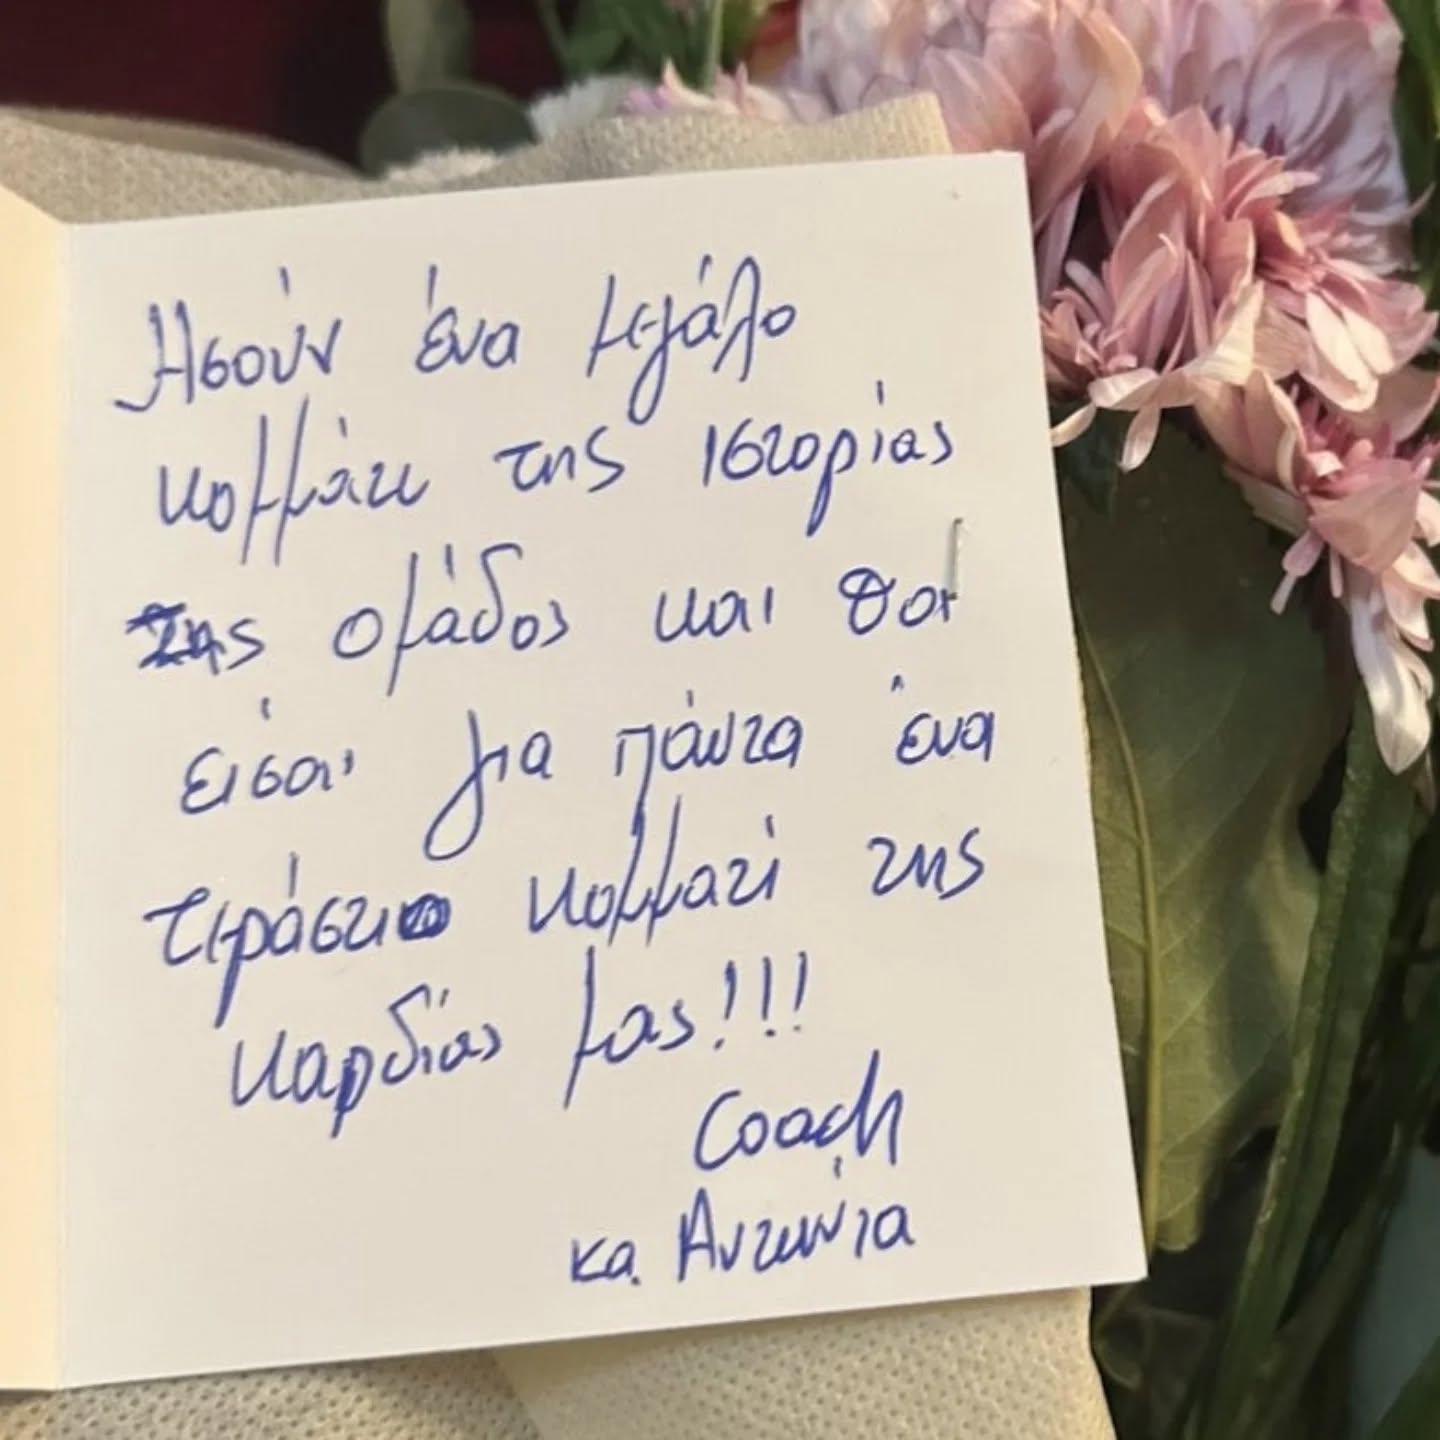 Ήσουν ένα μεγάλο
κομμάτι της ιστορίας
της ομάδος και θα
είσαι για πάντα ένα
τεράστιο κομμάτι της
καρδίας μας!!!
Coach
κα. Αντωνία